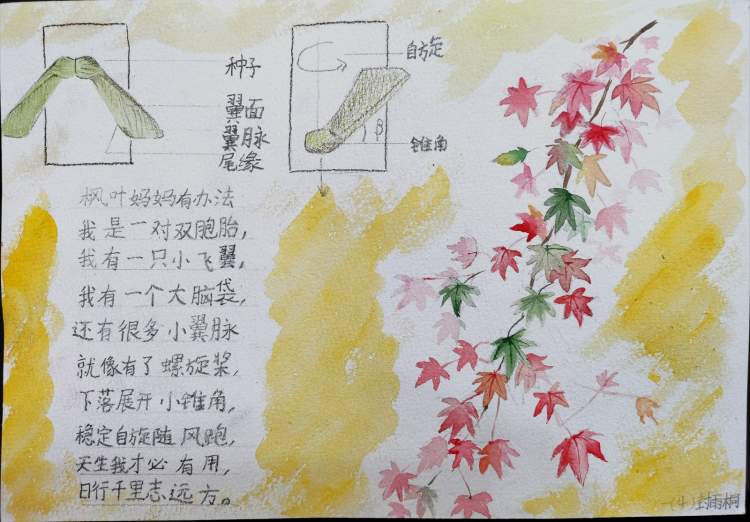 种子
翼面
翼脉
尾缘
自旋
β
锥角
枫叶妈妈有办法
我是一对双胞胎，
我有一只小飞翼，
我有一个大脑袋，
还有很多小翼脉
就像有了螺旋桨，
下落展开小锥角，
稳定自旋随风跑，
天生我才必有用，
日行千里志远方。
一(4)
雨桐